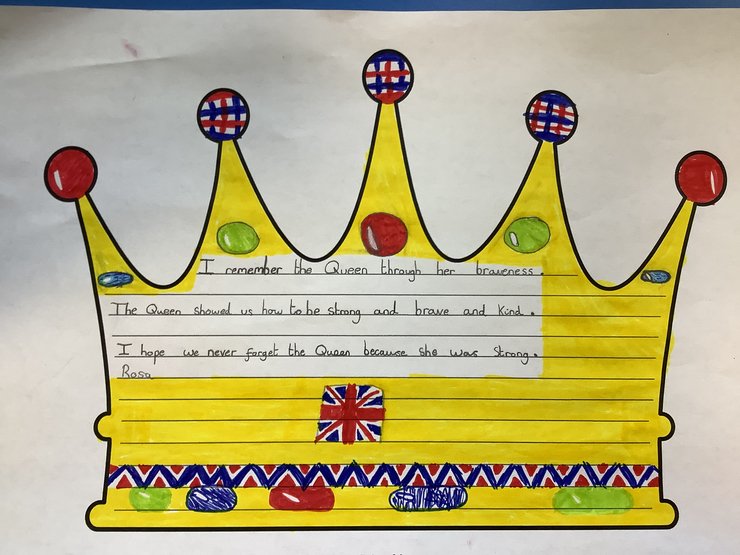 I remember the Queen through her braveness.
The Queen showed us how to be strong and brave and kind.
I hope we never forget the Queen because she was strong.
Rosa